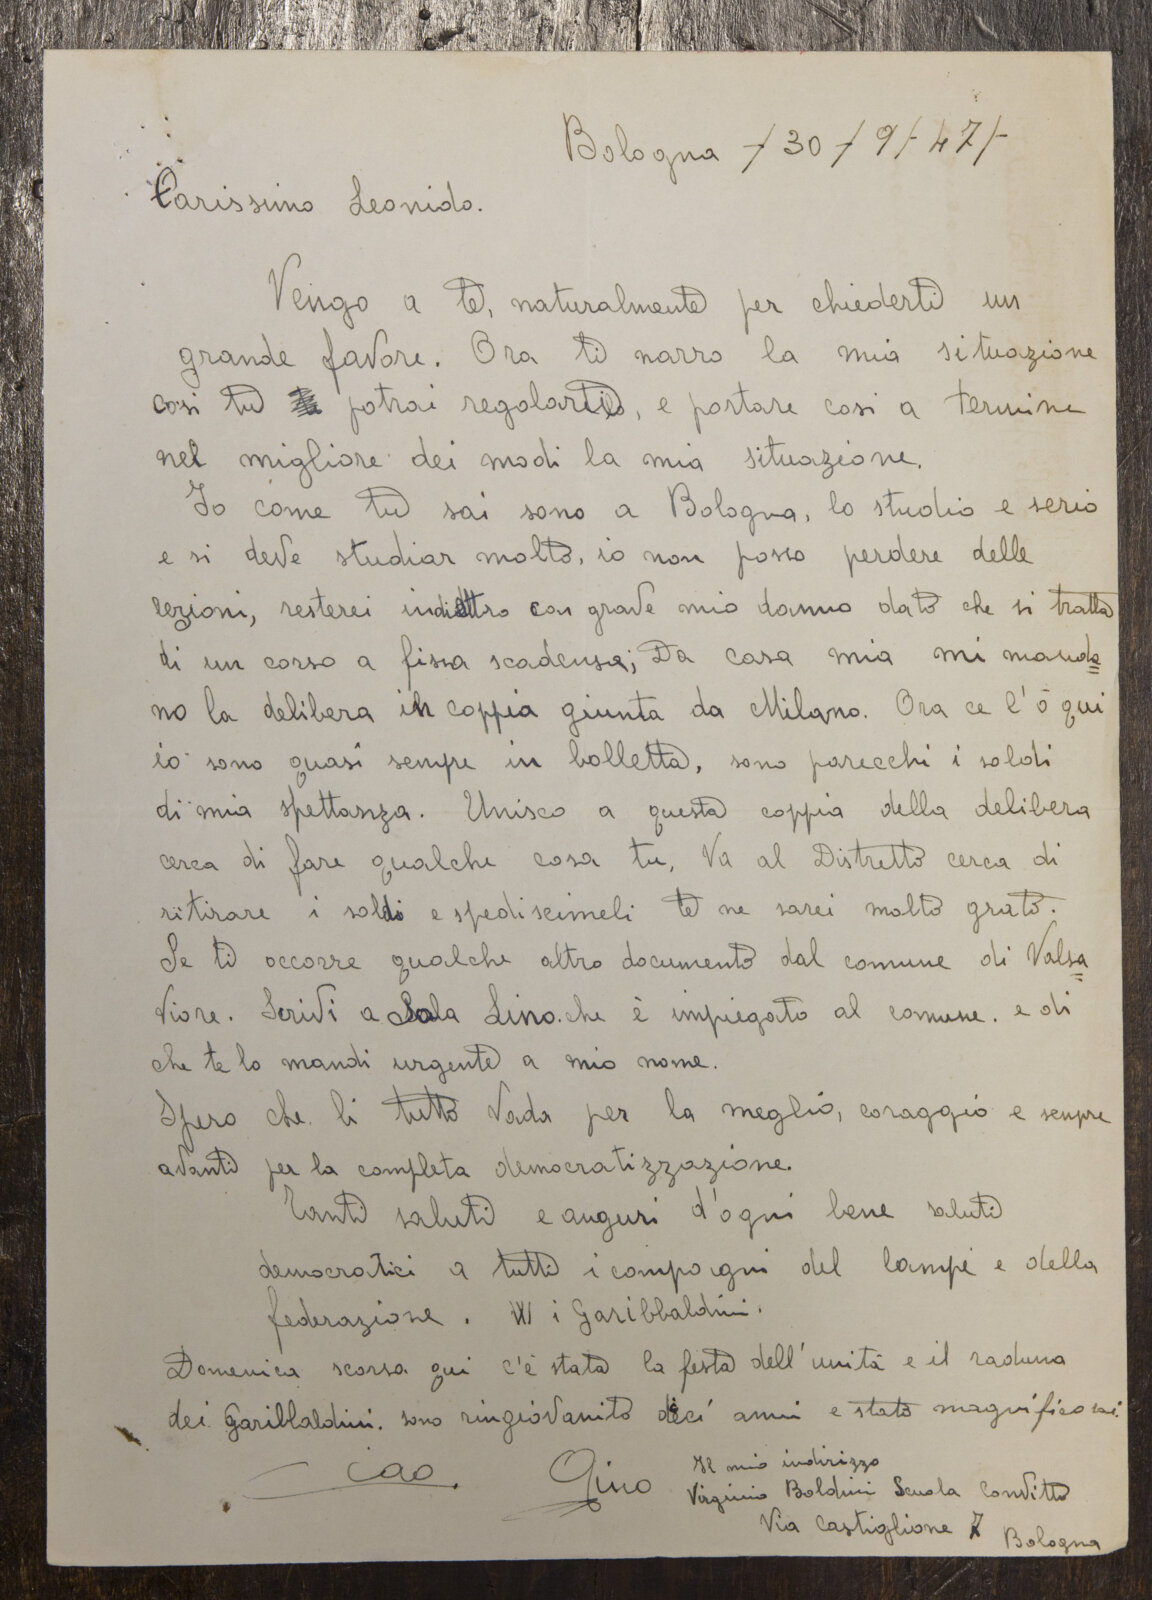 Bologna -/30-/9/-47/-
Carissimo Leonido.
Vengo a te, naturalmente per chiederti un
grande favore. Ora ti narro la mia situazione
cosi tu potrai regolarti, e portare cosi a termine
nel migliore dei modi la mia situazione.
Io come tu sai sono a Bologna, lo studio e serio
e si deve studiar molto, io non posso perdere delle
lezioni, resterei indiettro con grave mio danno dato che si tratta
di un corso a fissa scadensa; Da casa mia mi manda=
no la delibera in coppia giunta da Milano. Ora ce l'ò qui
io sono quasi sempre in bolletta, sono parecchi i soldi
di mia spettanza. Unisco a questa coppia della delibera
cerca di fare qualche cosa tu, Va al Distretto cerca di
ritirare i soldi e spediscimeli te ne sarei molto grato.
Se ti occorre qualche altro documento dal comune di Valsa=
viore. Scrivi a Sala Lino. che è impiegato al comune. e di
che te lo mandi urgente a mio nome.
Spero che li tutto vada per la meglio, coraggio e sempre
avanti per la completa democratizzazione.
Tanti saluti e auguri d'ogni bene saluti
democratici a tutti i compagni del lampi e della
federazione. W i Garibbaldini.
Domenica scorsa qui c'è stata la festa dell'unità e il raduna
dei Garibbaldini. sono ringiovanito dieci anni e stato magnifico sai.
Ciao. Gino
Il mio indirizzo
Virginio Boldini Scuola Convitto
Via Castiglione 7
Bologna